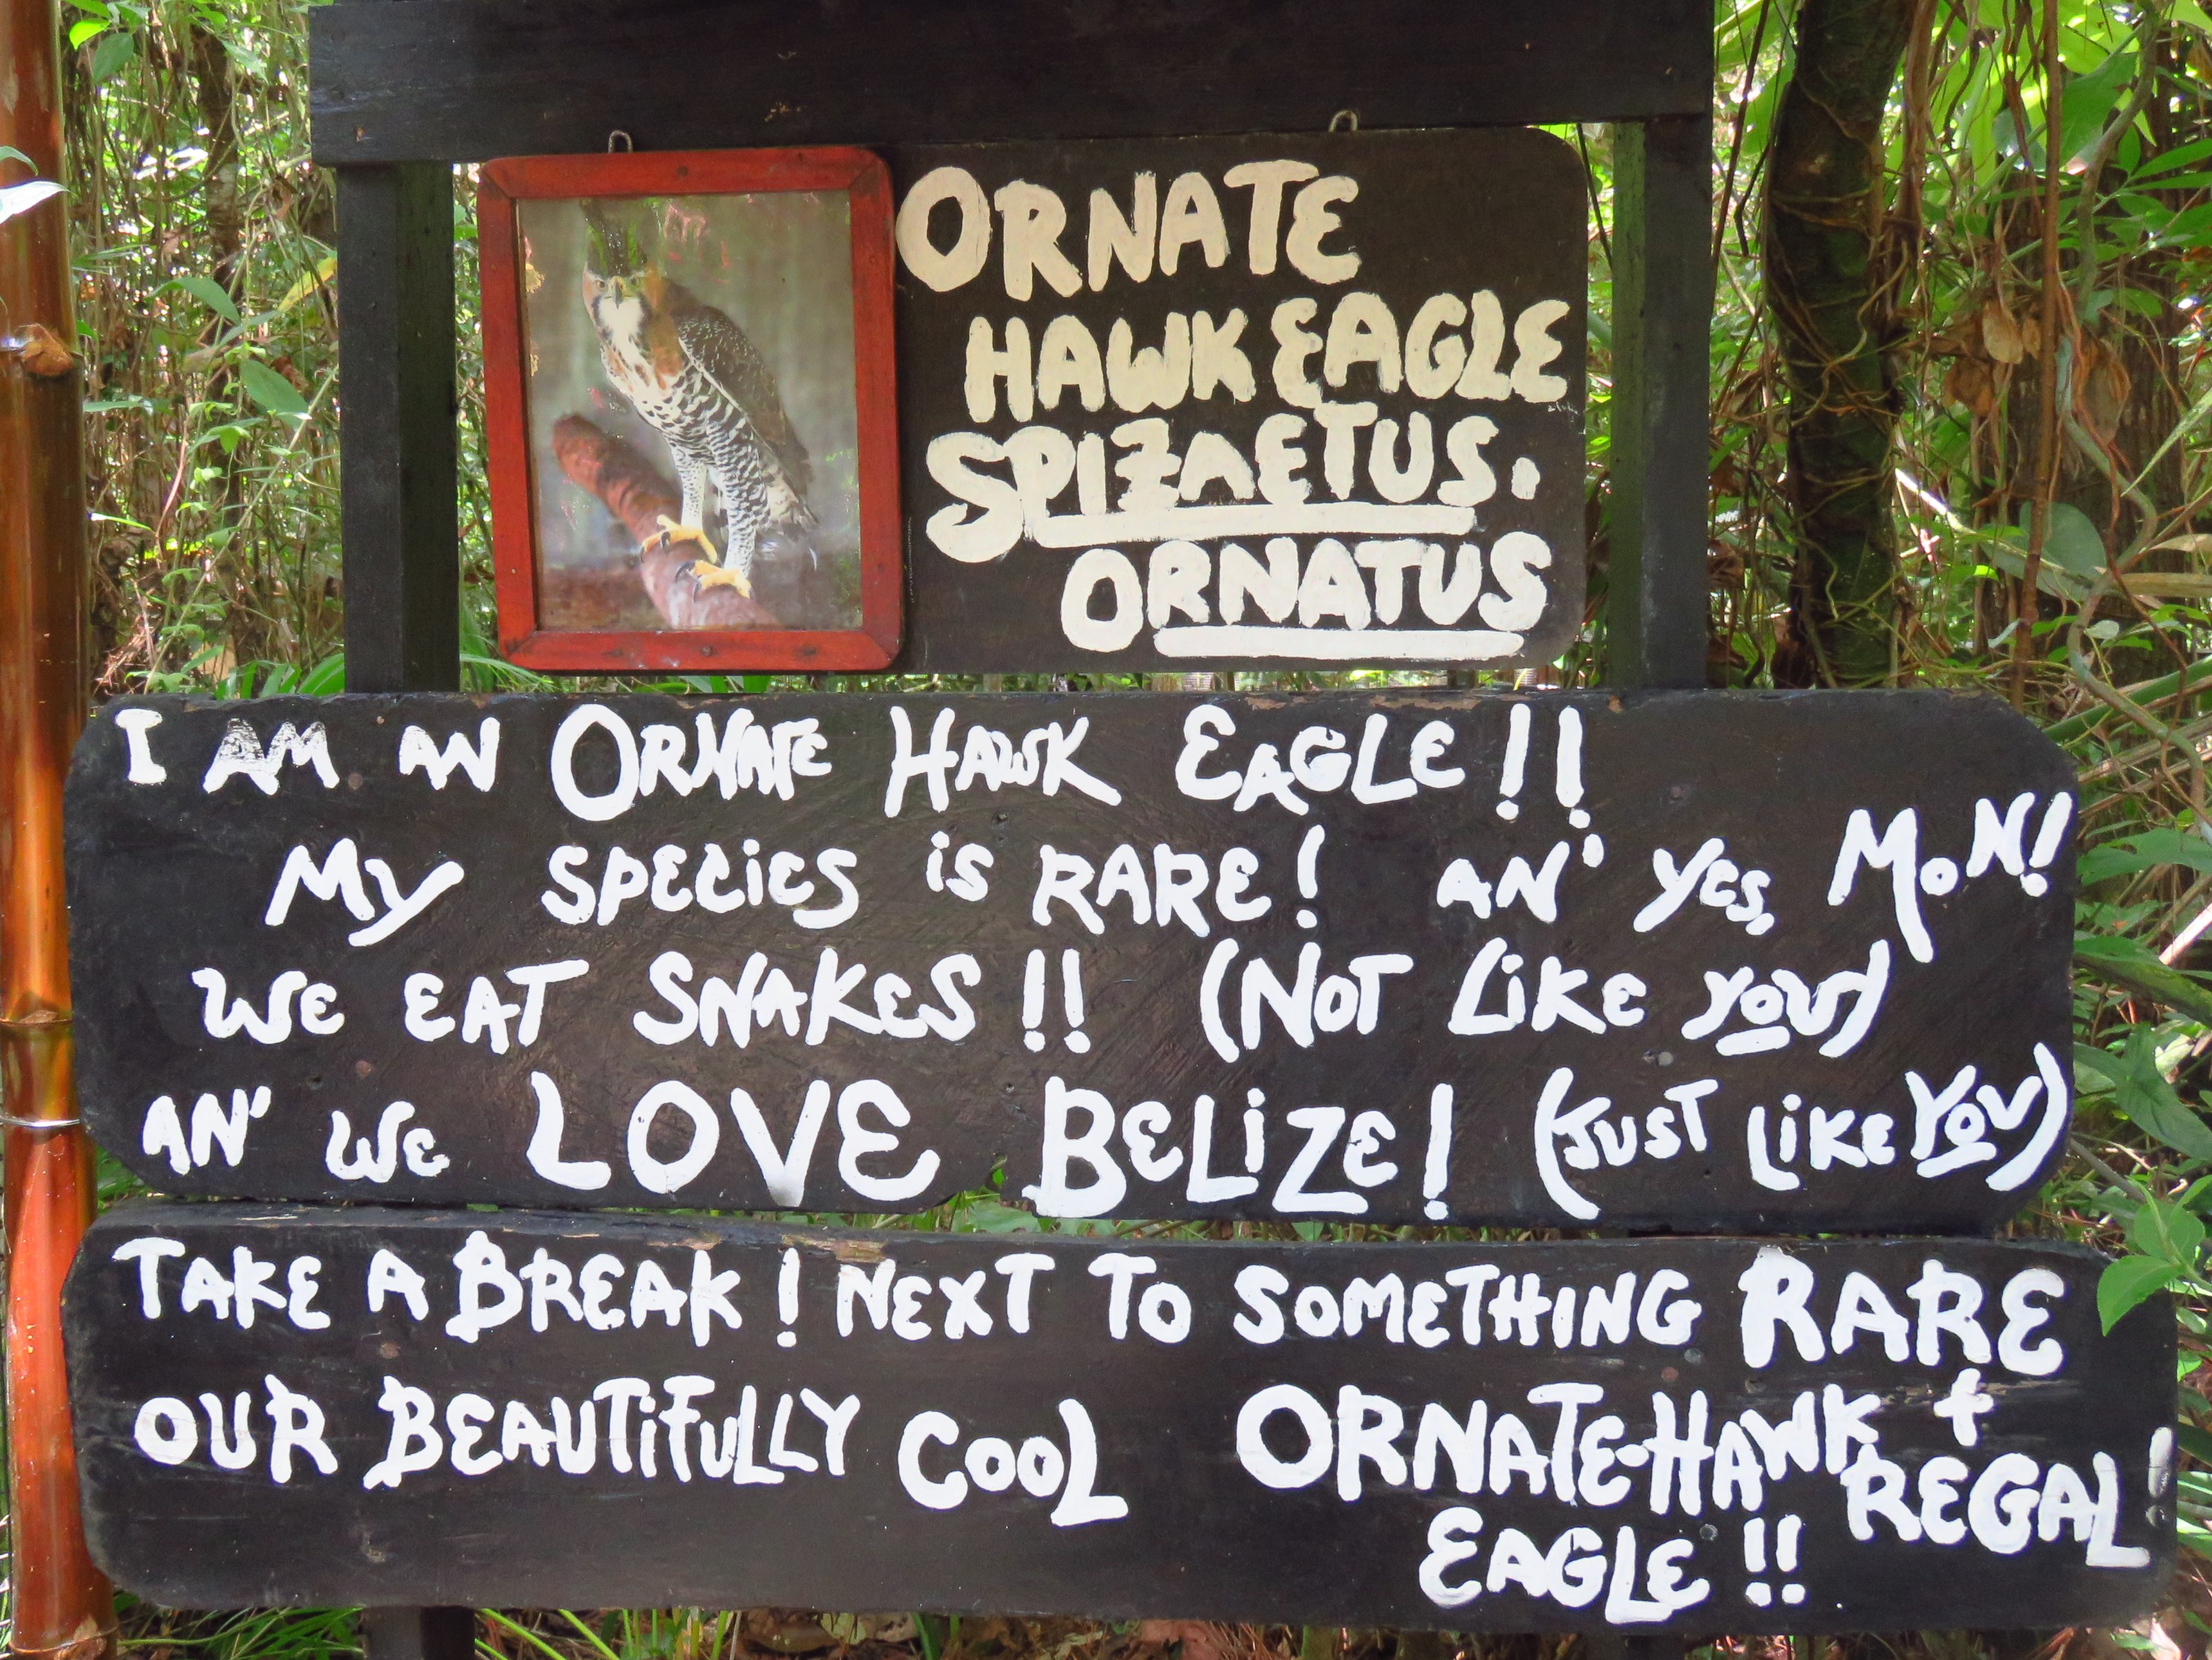 ORNATE
HAWK EAGLE
SPIZAETUS.
ORNATUS
I AM AN ORNATE HAWK EAGLE!!
MY SPECIES iS RARE! AN' YES, MON!
WE EAT SNAKES!! (NOT LiKE YOU)
AN' WE LOVE BELiZE! (JUST LiKE YOU)
TAKE A BREAK! NEXT TO SOMETHING RARE +
OUR BEAUTiFULLY COOL ORNATE-HAWK REGAL!
EAGLE!!